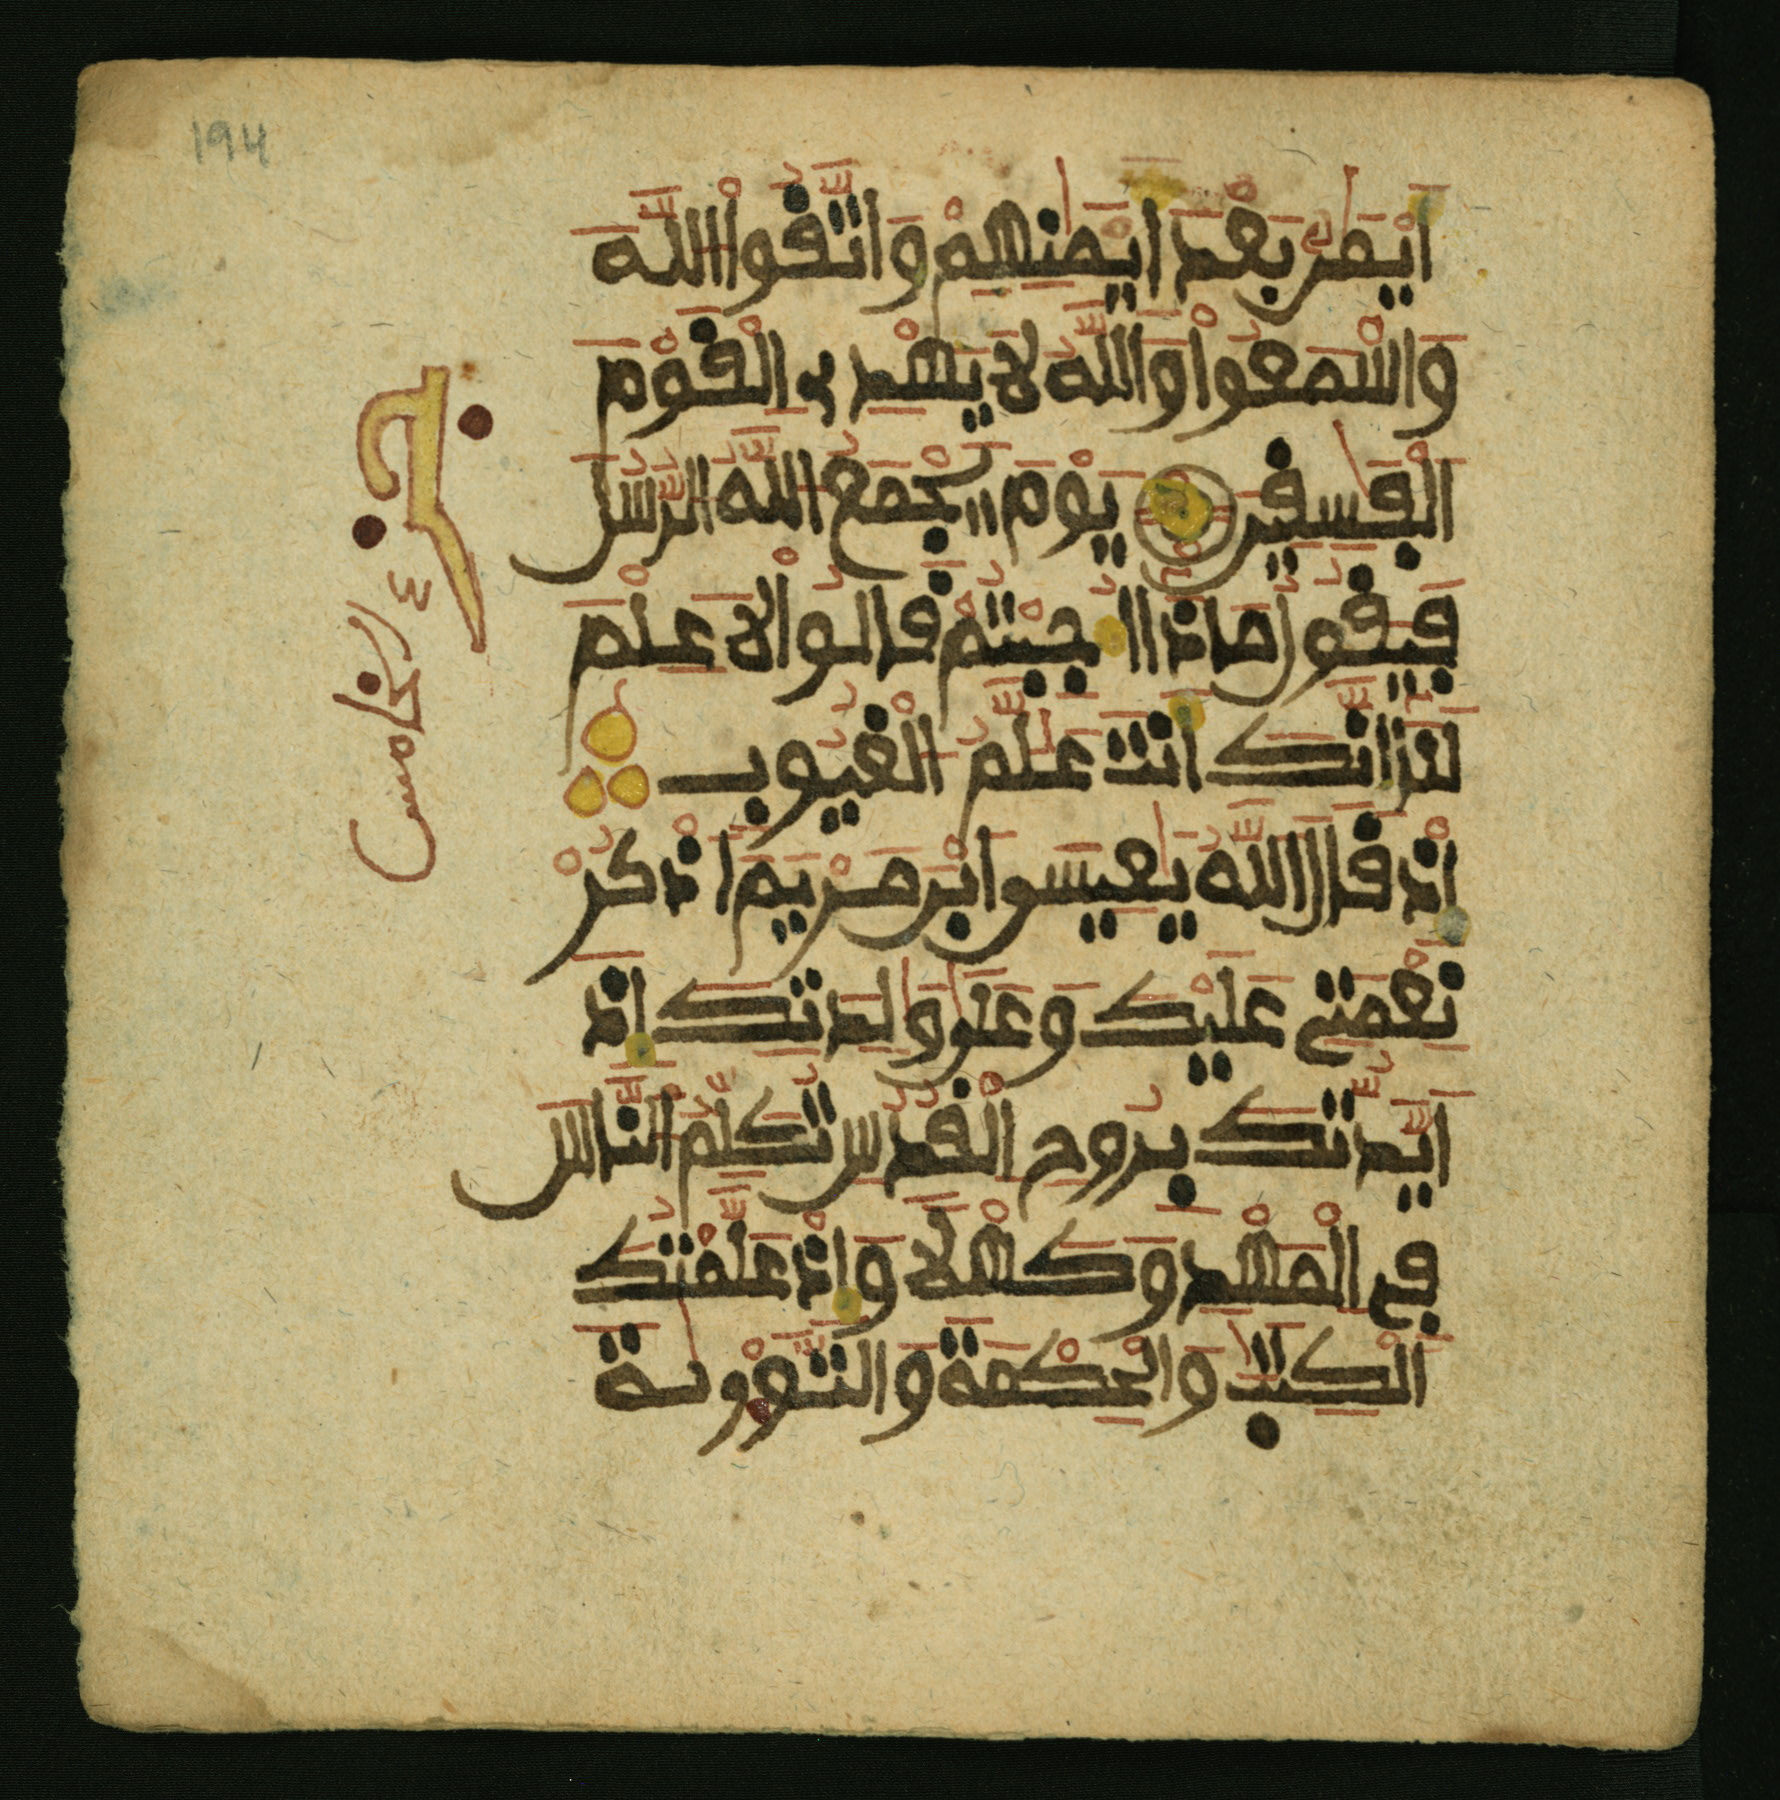 194
ايمن بعد ايمنهم واتقوا الله
واسمعوا والله لا يهدى القوم
الفسقين يوم يجمع الله الرسل
فيقول ماذا اجبتم قالوا لا علم
لنا انك انت علم الغيوب
اذ قال الله يعيسى ابن مريم اذكر
نعمتى عليك وعلى ولدتك اذ
ايدتك بروح القدس تكلم الناس
فى المهد وكهلا واذ علمتك
الكتب والحكمة والتورية